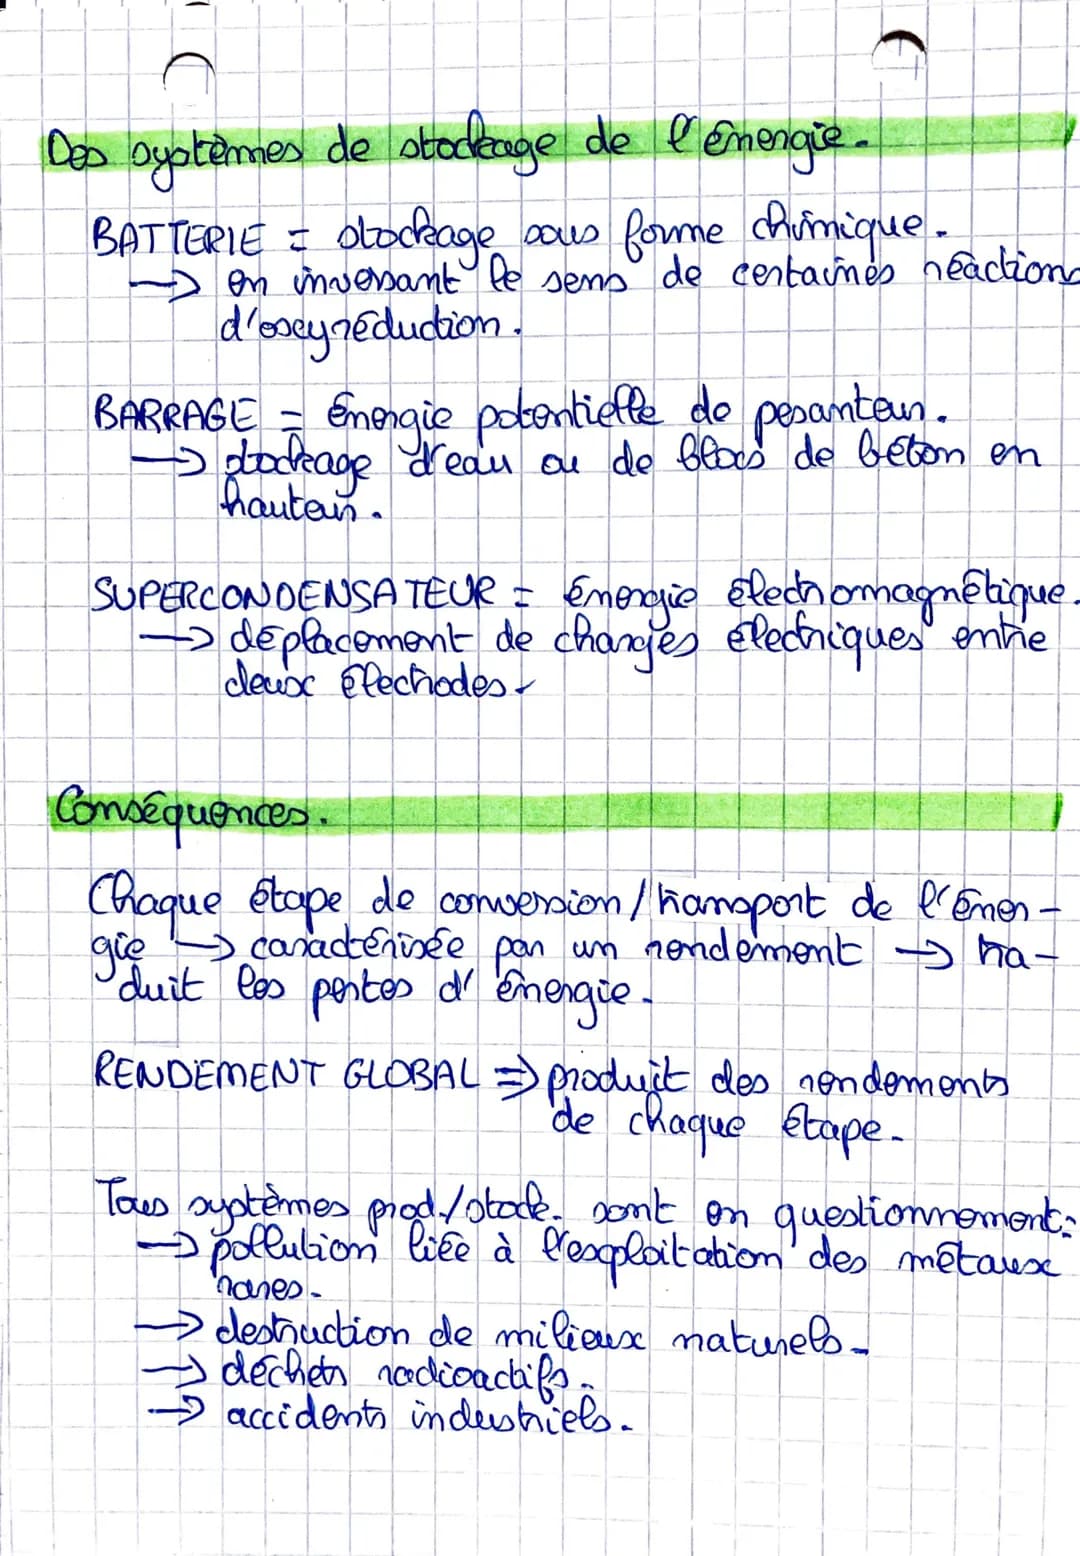 Des systèmes de stockage de l'énergie.
BATTERIE = stockage sous forme chimique.
→ en inversant le sens de certaines réactions
d'oxeyréduction.
BARRAGE = énergie potentielle de pesanteur.
→ stockage d'eau ou de blocs de béton en
hauteur.
SUPERCONDENSATEUR = énergie électromagnétique.
→ déplacement de charges électriques entre
deux électrodes.
Conséquences.
Chaque étape de conversion/transport de l'éner-
gie → caractérisée par un rendement → tra-
duit les pertes d'énergie.
RENDEMENT GLOBAL ⇒ produit des rendements
de chaque étape.
Tous systèmes prod./stock. sont en questionnement:
→ pollution liée à l'exploitation des métaux
rares.
→ destruction de milieux naturels.
→ déchets radioactifs.
→ accidents industriels.